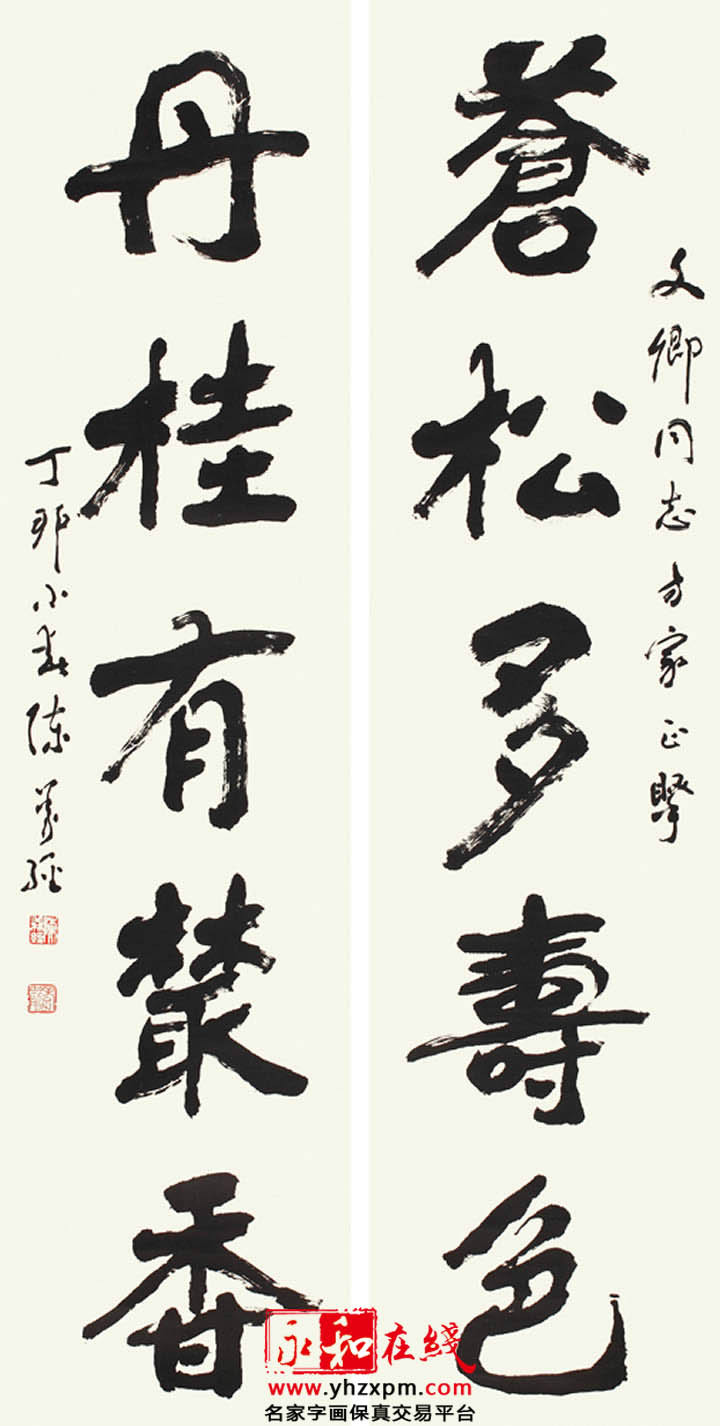 蒼松多壽色
文卿同志方家正
丹桂有叢香
丁卯小春陳
永和在綫
www.yhzxpm.com
名家字画保真交易平台